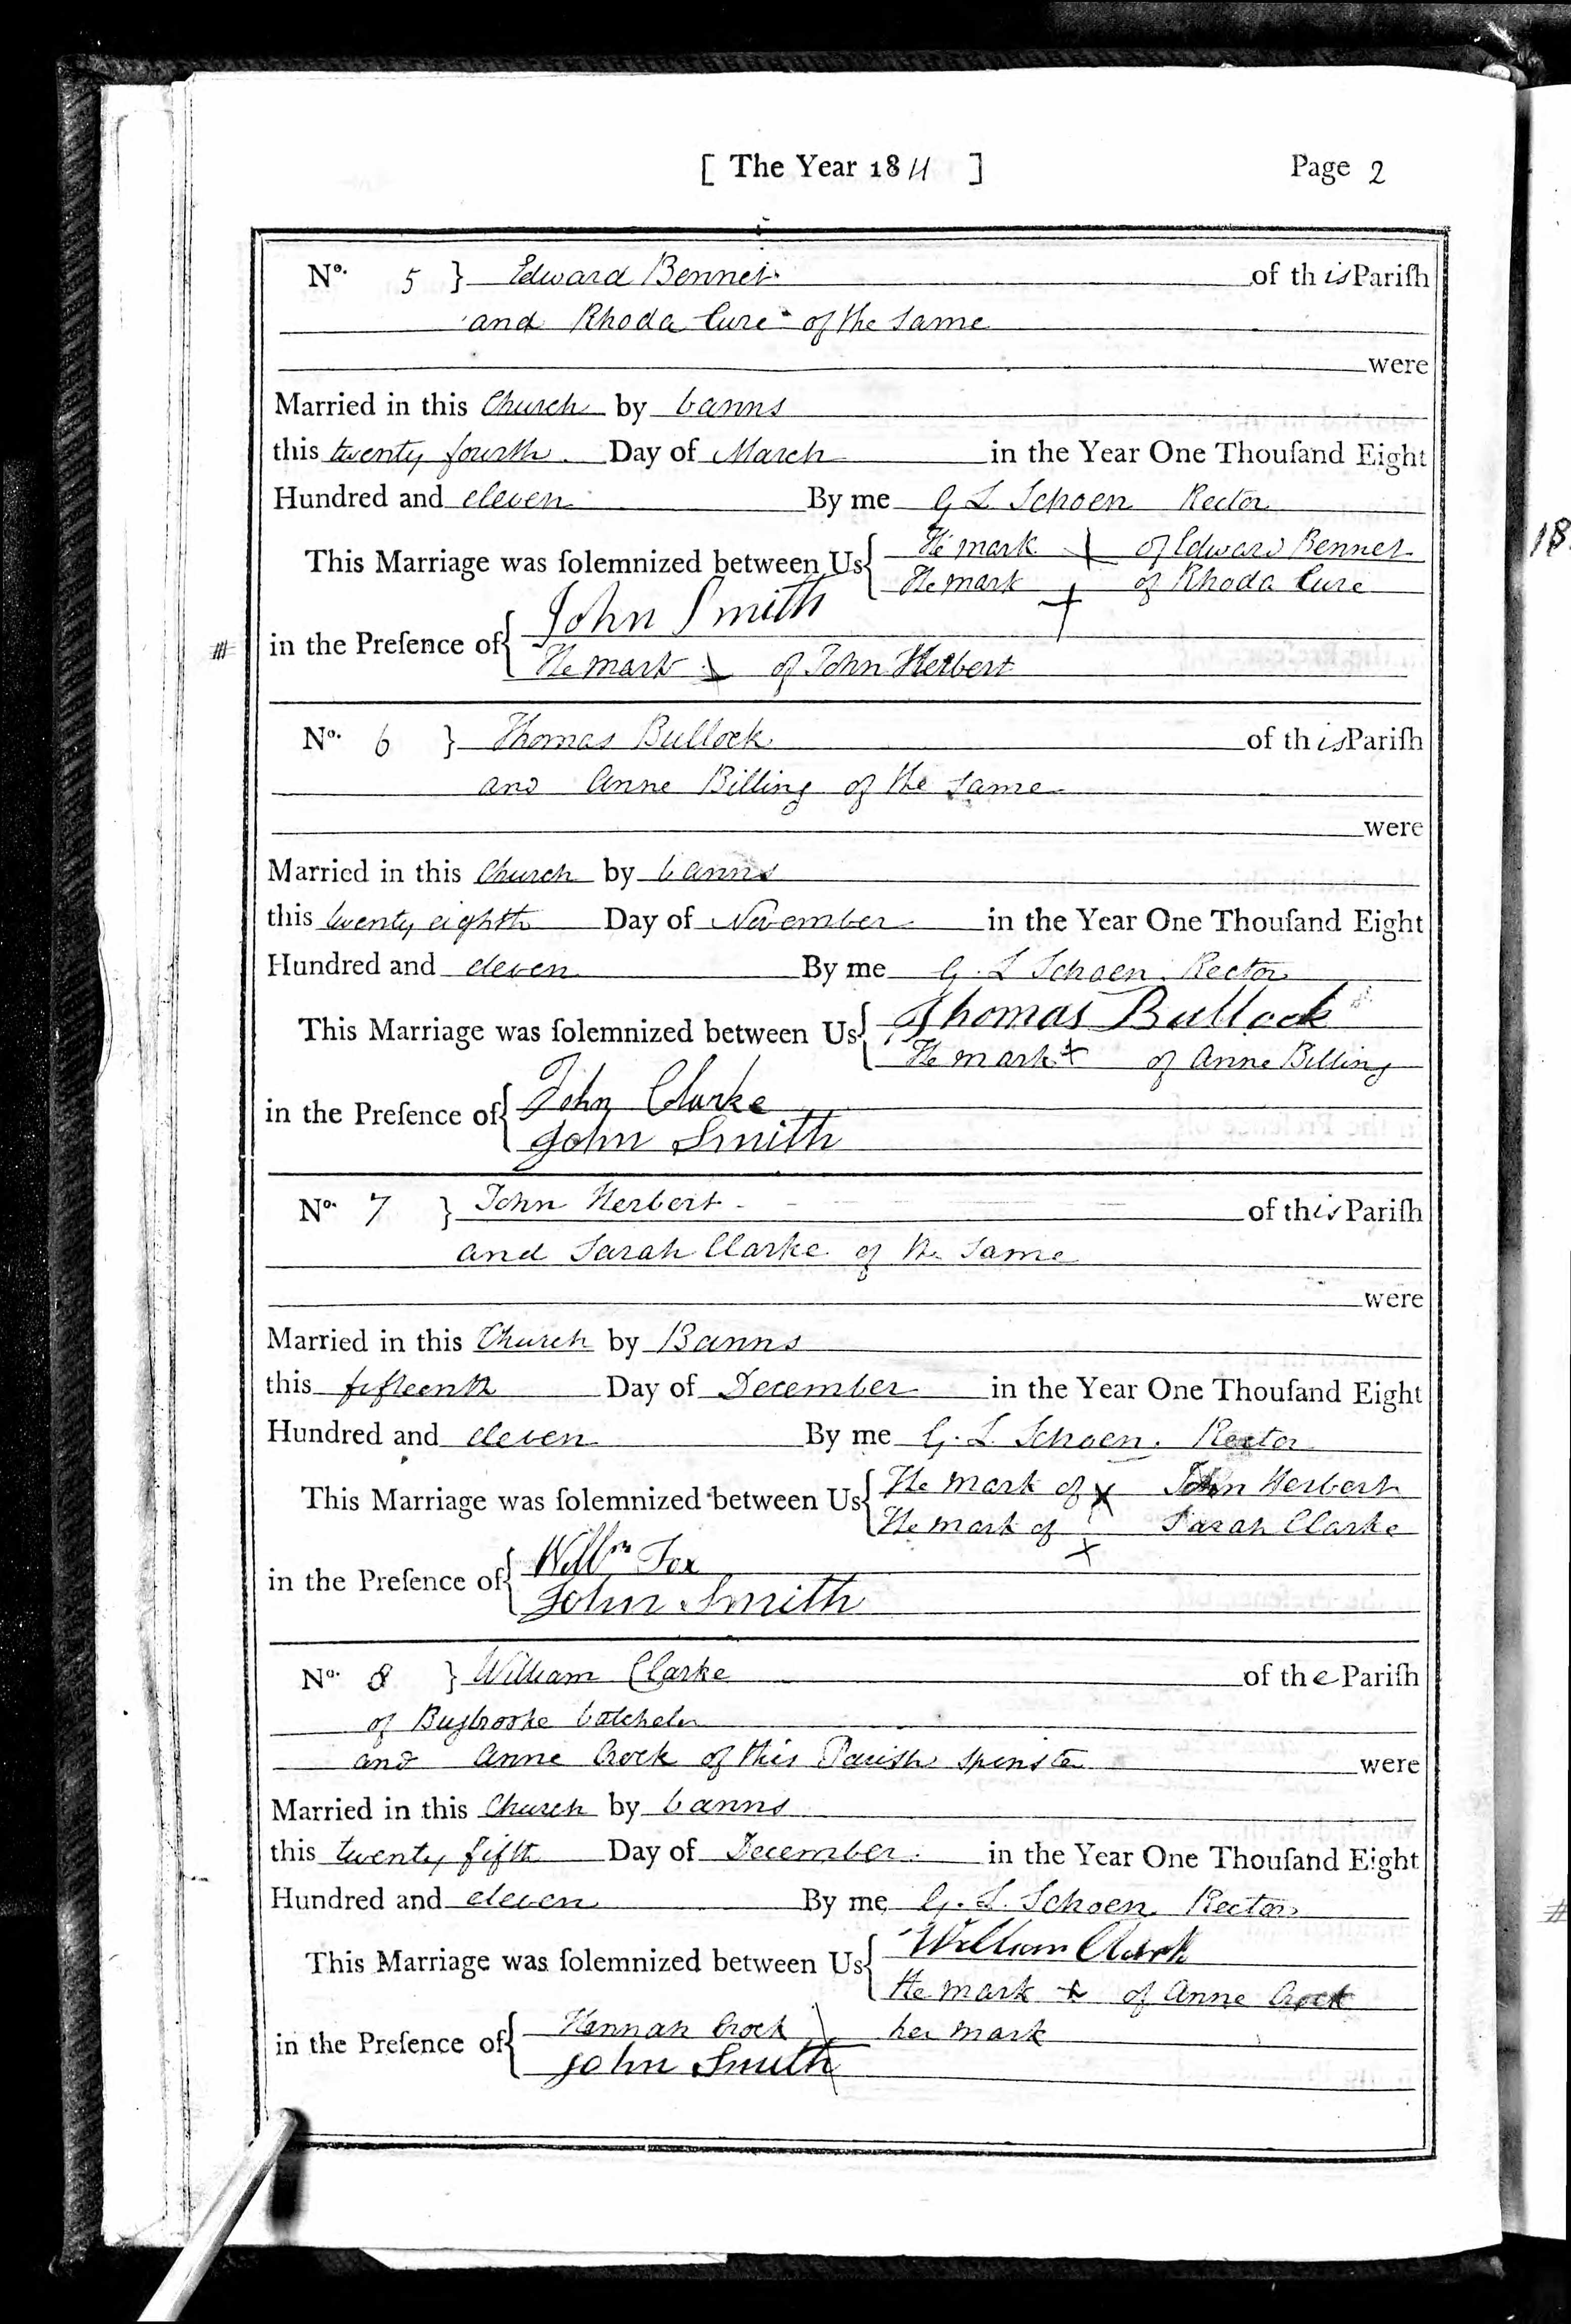 [ The Year 1811 ] Page 2
No. 5 } Edward Bennet of this Pariſh
and Rhoda Cure of the same
were
Married in this Church by banns
this twenty fourth Day of March in the Year One Thouſand Eight
Hundred and eleven By me G L Schoen Rector
This Marriage was ſolemnized between Us { The mark of Edward Bennet
The mark + of Rhoda Cure
in the Preſence of { John Smith
The mark of John Herbert
No. 6 } Thomas Bullock of this Pariſh
and Anne Billing of the same
were
Married in this Church by banns
this twenty eighth Day of November in the Year One Thouſand Eight
Hundred and eleven By me G. L Schoen Rector
This Marriage was ſolemnized between Us { Thomas Bullock
The mark + of Anne Billing
in the Preſence of { John Clarke
John Smith
No. 7 } John Herbert of this Pariſh
and Sarah Clarke of the same
were
Married in this Church by Banns
this fifteenth Day of December in the Year One Thouſand Eight
Hundred and eleven By me G. L. Schoen. Rector
This Marriage was ſolemnized between Us { The mark of x John Herbert
The mark of x Sarah Clarke
in the Preſence of { Willm Fox
John Smith
No. 8 } William Clarke of the Pariſh
of Bugbrooke batchelor
and Anne Crock of this Parish spinster were
Married in this Church by banns
this twenty fifth Day of December in the Year One Thouſand Eight
Hundred and eleven By me G. L. Schoen Rector
This Marriage was ſolemnized between Us { William Clark
The mark + of Anne Crock
in the Preſence of { Hannah Crock \ her mark
John Smith